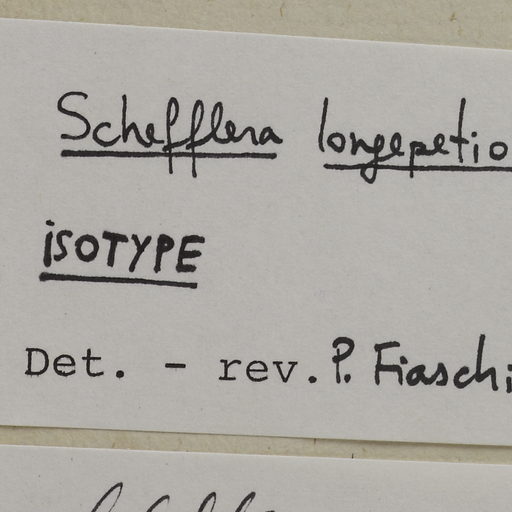 Schefflera longepetio
isOTYPE
Det. - rev. P. Fiaschi